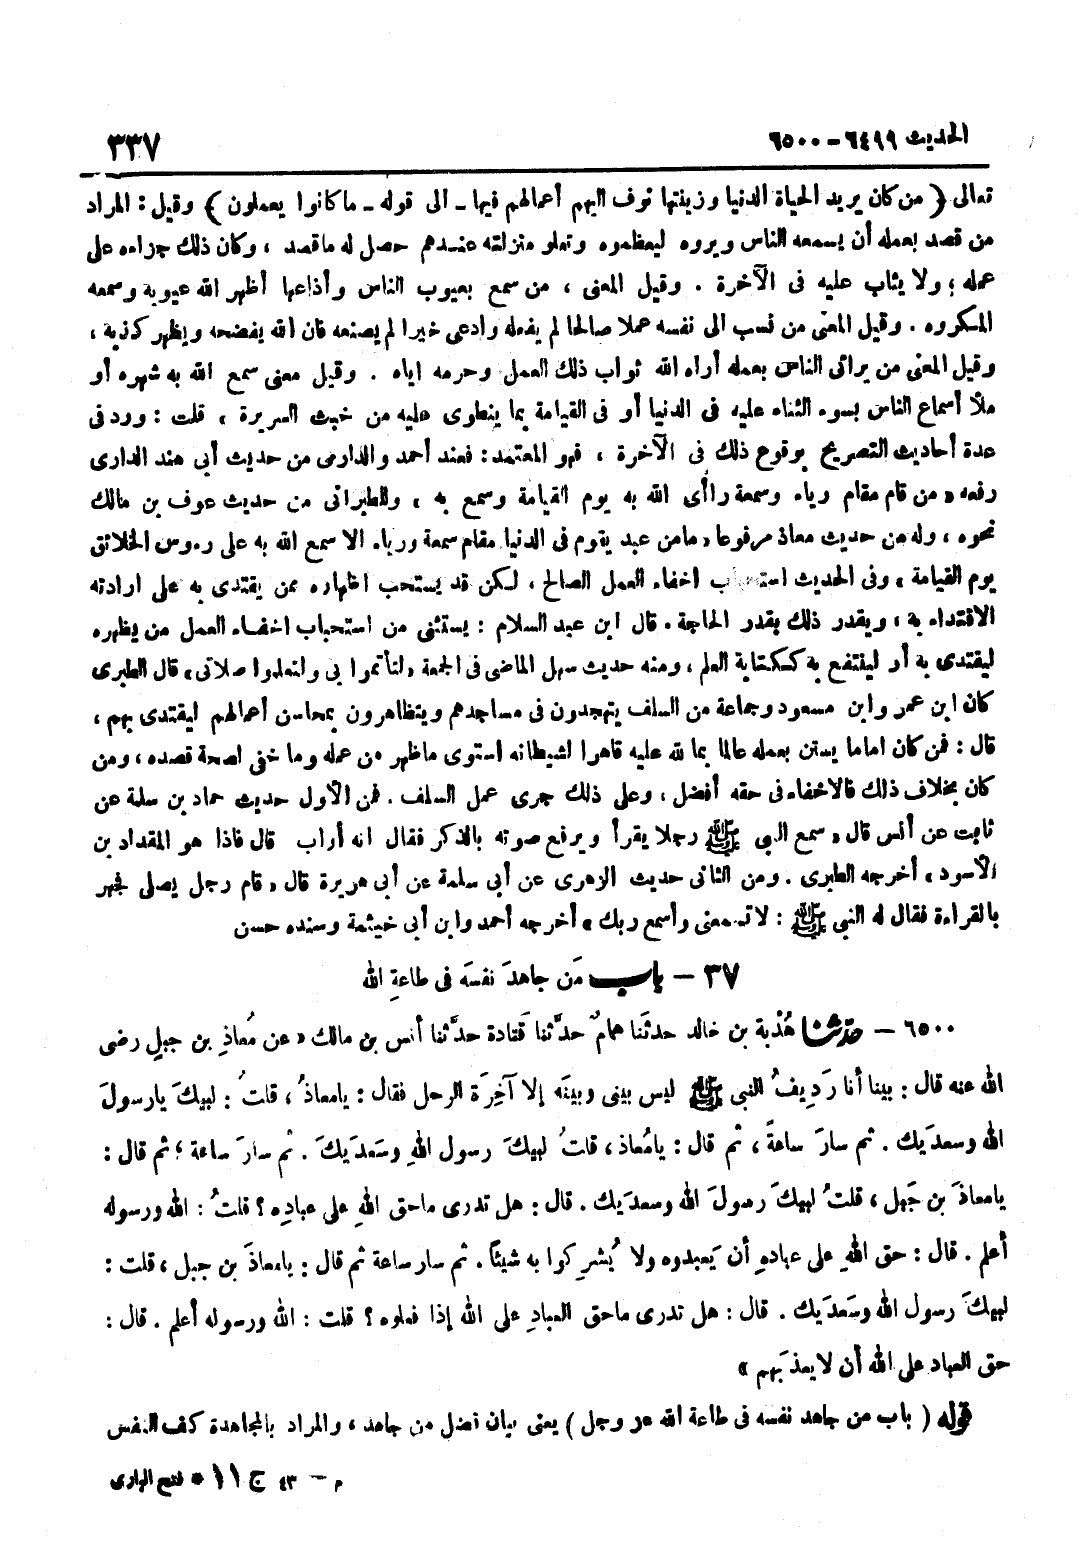 الحديث ٦٤٩٩ - ٦٥٠٠ ٣٣٧
تعالى ( من كان يريد الحياة الدنيا وزينتها نوف اليهم أعمالهم فيها - الى قوله - ما كانوا يعملون ) وقيل : المراد
من قصد بعمله أن يسمعه الناس ويروه ليعظموه وتعلو منزلته عندهم حصل له ما قصد ، وكان ذلك جزاءه على
عمله ؛ ولا يثاب عليه فى الآخرة . وقيل المعنى ، من سمع بعيوب الناس وأذاعها أظهر الله عيوبه وسمعه
المكروه . وقيل المعنى من نسب الى نفسه عملا صالحا لم يفعله وادعى خيرا لم يصنعه فان الله يفضحه ويظهر كذبه ،
وقيل المعنى من يرائى الناس بعمله أراه الله ثواب ذلك العمل وحرمه اياه . وقيل معنى سمع الله به شهره أو
ملأ أسماع الناس بسوء الثناء عليه فى الدنيا أو فى القيامة بما ينطوى عليه من خبث السريرة ، قلت : ورد فى
عدة أحاديث التصريح بوقوع ذلك فى الآخرة ، فهو المعتمد : فعند أحمد والدارمى من حديث أبى هند الدارى
رفعه « من قام مقام رياء وسمعة راأى الله به يوم القيامة وسمع به ، وللطبرانى من حديث عوف بن مالك
نحوه ، وله من حديث معاذ مرفوعا « ما من عبد يقوم فى الدنيا مقام سمعة ورياء الا سمع الله به على رءوس الخلائق
يوم القيامة » وفى الحديث استحباب اخفاء العمل الصالح ، لكن قد يستحب اظهاره ممن يقتدى به على ارادته
الاقتداء به ، ويقدر ذلك بقدر الحاجة . قال ابن عبد السلام : يستثنى من استحباب اخفاء العمل من يظهره
ليقتدى به أو لينتفع به ككتابة العلم ، ومنه حديث سهل الماضى فى الجمعة « لتأتموا بى ولتعلموا صلاتى » قال الطبرى
كان ابن عمر وابن مسعود وجماعة من السلف يتهجدون فى مساجدهم ويتظاهرون بمحاسن أعمالهم ليقتدى بهم ،
قال : فمن كان اماما يستن بعمله عالما بما لله عليه قاهرا لشيطانه استوى ما ظهر من عمله وما خفى لصحة قصده ، ومن
كان بخلاف ذلك فالاخفاء فى حقه أفضل ، وعلى ذلك جرى عمل السلف . فمن الأول حديث حماد بن سلمة عن
ثابت عن أنس قال « سمع النبى ﷺ رجلا يقرأ ويرفع صوته بالذكر فقال انه أراب قال فاذا هو المقداد بن
الأسود » أخرجه الطبرى . ومن الثانى حديث الزهرى عن أبى سلمة عن أبى هريرة قال « قام رجل يصلى فجهر
بالقراءة فقال له النبى ﷺ : لا تسمعنى وأسمع ربك » أخرجه أحمد وابن أبى خيثمة وسنده حسن
٣٧ - باب مَن جاهدَ نفسَه فى طاعةِ الله
٦٥٠٠ - حدثنا هُدْبة بن خالد حدثَنا همامٌ حدَّثنا قَتادة حدَّثنا أنس بن مالك « عن مُعاذِ بن جبلٍ رضى
الله عنه قال : بينا أنا رَديفُ النبى ﷺ ليس بينى وبينَه إلا آخِرَة الرحل فقال : يا معاذُ ، قلتُ : لبيكَ يا رسولَ
الله وسعدَيك . ثم سارَ ساعةً ، ثم قال : يا مُعاذ ، قلتُ لبيكَ رسول اللهِ وسَعدَيكَ . ثم سارَ ساعة ؛ ثم قال :
يا معاذَ بن جَبل ، قلتُ لبيكَ رسولَ الله وسعدَيك . قال : هل تدرى ما حق اللهِ على عبادِه ؟ قلتُ : الله ورسوله
أعلم . قال : حق اللهِ على عبادهِ أن يَعبدوه ولا يُشرِكوا به شيئاً . ثم سار ساعة ثم قال : يا معاذَ بن جبل ، قلت :
لبيكَ رسول الله وسَعدَيك . قال : هل تدرى ما حق العبادِ على الله إذا فعلوه ؟ قلت : الله ورسوله أعلم . قال :
حق العباد على الله أن لا يعذبَهم »
قوله ( باب من جاهد نفسه فى طاعة الله عز وجل ) يعنى بيان فضل من جاهد ، والمراد بالمجاهدة كف النفس
م - ٤٣ ج ١١ * فتح البارى